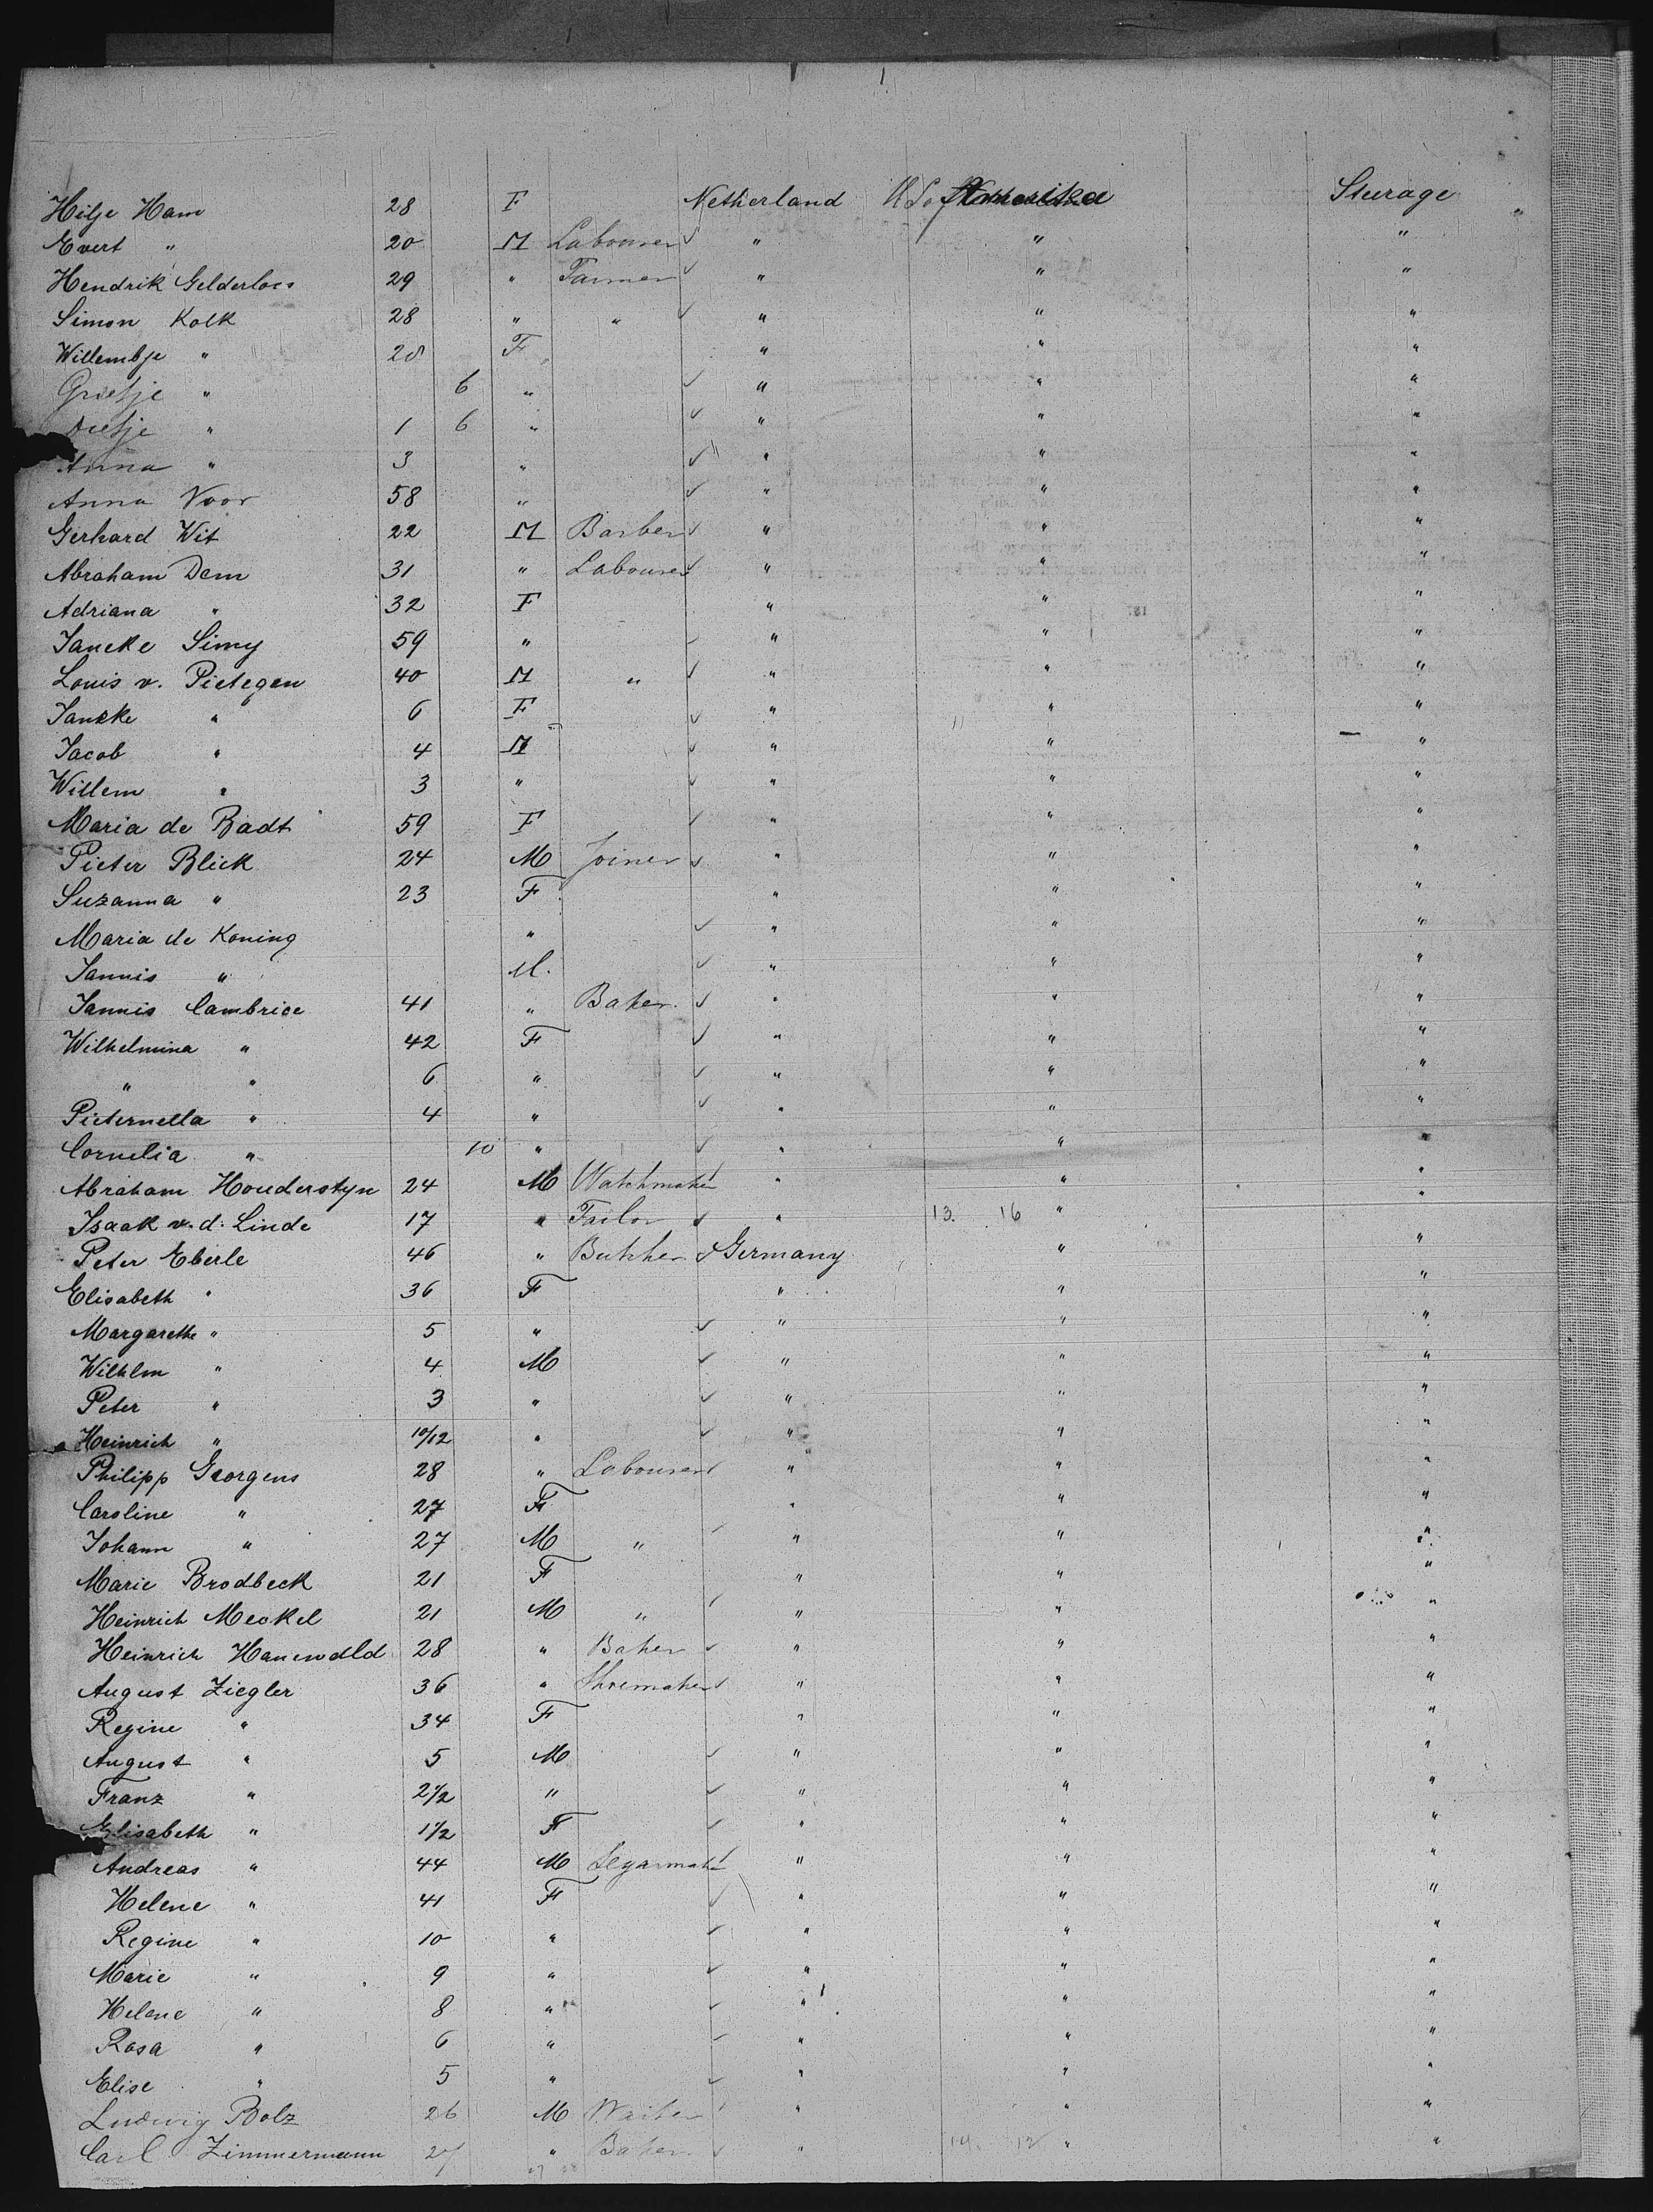 Hilje Ham 28 F Netherland U S of Amerika Sturage
Evert " 20 M Labourer " " "
Hendrik Gelderloos 29 " Farmer " " "
Simon Kolk 28 " " " " "
Willembje " 28 F " " "
Grietje " 6 " " " "
" 1 6 " " " "
Anna " 3 " " " "
Anna Voor 58 " " " "
Gerhard Wit 22 M Barber " " "
Abraham Dam 31 " Labourer " " "
Adriana " 32 F " " "
Janeke Simy 59 " " " "
Louis v. Pietegen 40 M " " " "
Janeke " 6 F " " "
Jacob " 4 M " " "
Willem " 3 " " " "
Maria de Badt 59 F " " "
Pieter Bliek 24 M Joiner " " "
Suzanna " 23 F " " "
Maria de Koning " " " "
Jannis " M. " " "
Jannis Cambrice 41 " Baker " " "
Wilhelmina " 42 F " " "
" " 6 " " " "
Pieternella " 4 " " " "
Cornelia " 10 " " " "
Abraham Houderstyn 24 M Watchmaker " " "
Isaak v. d. Linde 17 " Tailor " 13. 16 " "
Peter Eberle 46 " Butcher Germany " "
Elisabeth " 36 F " " "
Margarethe " 5 " " " "
Wilhlm " 4 M " " "
Peter " 3 " " " "
Heinrich " 10/12 " " " "
Philipp Georgens 28 " Labourer " " "
Caroline " 27 F " " "
Johann " 27 M " " " "
Marie Brodbeck 21 F " " "
Heinrich Meckel 21 M " " " "
Heinrich Hanewdld 28 " Baker " " "
August Ziegler 36 " Shoemaker " " "
Regine " 34 F " " "
August " 5 M " " "
Franz " 2 1/2 " " " "
Elisabeth " 1 1/2 F " " "
Andreas " 44 M Segarmaker " " "
Helene " 41 F " " "
Regine " 10 " " " "
Marie " 9 " " " "
Helene " 8 " " " "
Rosa " 6 " " " "
Elise " 5 " " " "
Ludwig Bolz 26 M Waiter " " "
Carl Zimmermann 27 " Baker " " "